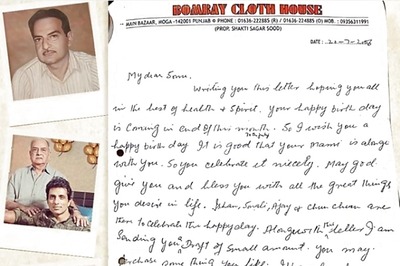 BOMBAY CLOTH HOUSE
MAIN BAZAAR, MOGA-142001 PUNJAB PHONE : 01636-222885 (R) / 01636-224881 (O) MOB. : 0935631199
(PROP. SHAKTI SAGAR SOOD)
DATE :
My dear Sonu.
Writing you this letter hoping you all
in the best of health & Spirit. Your happy birth day
is Coming in end of this month. So I wish you a
happy birth day. It is good that your mami is alonge
with you. So you celebrate it nicetely. May god
give you and bless you with all the great things
you desire in life. Ishan, Sonali, Ajay & chun chun are
there to celebrate the happy day. Alongewith this letter I am
Sending you Draft of Small amount. You may
Purchase some thing you like.